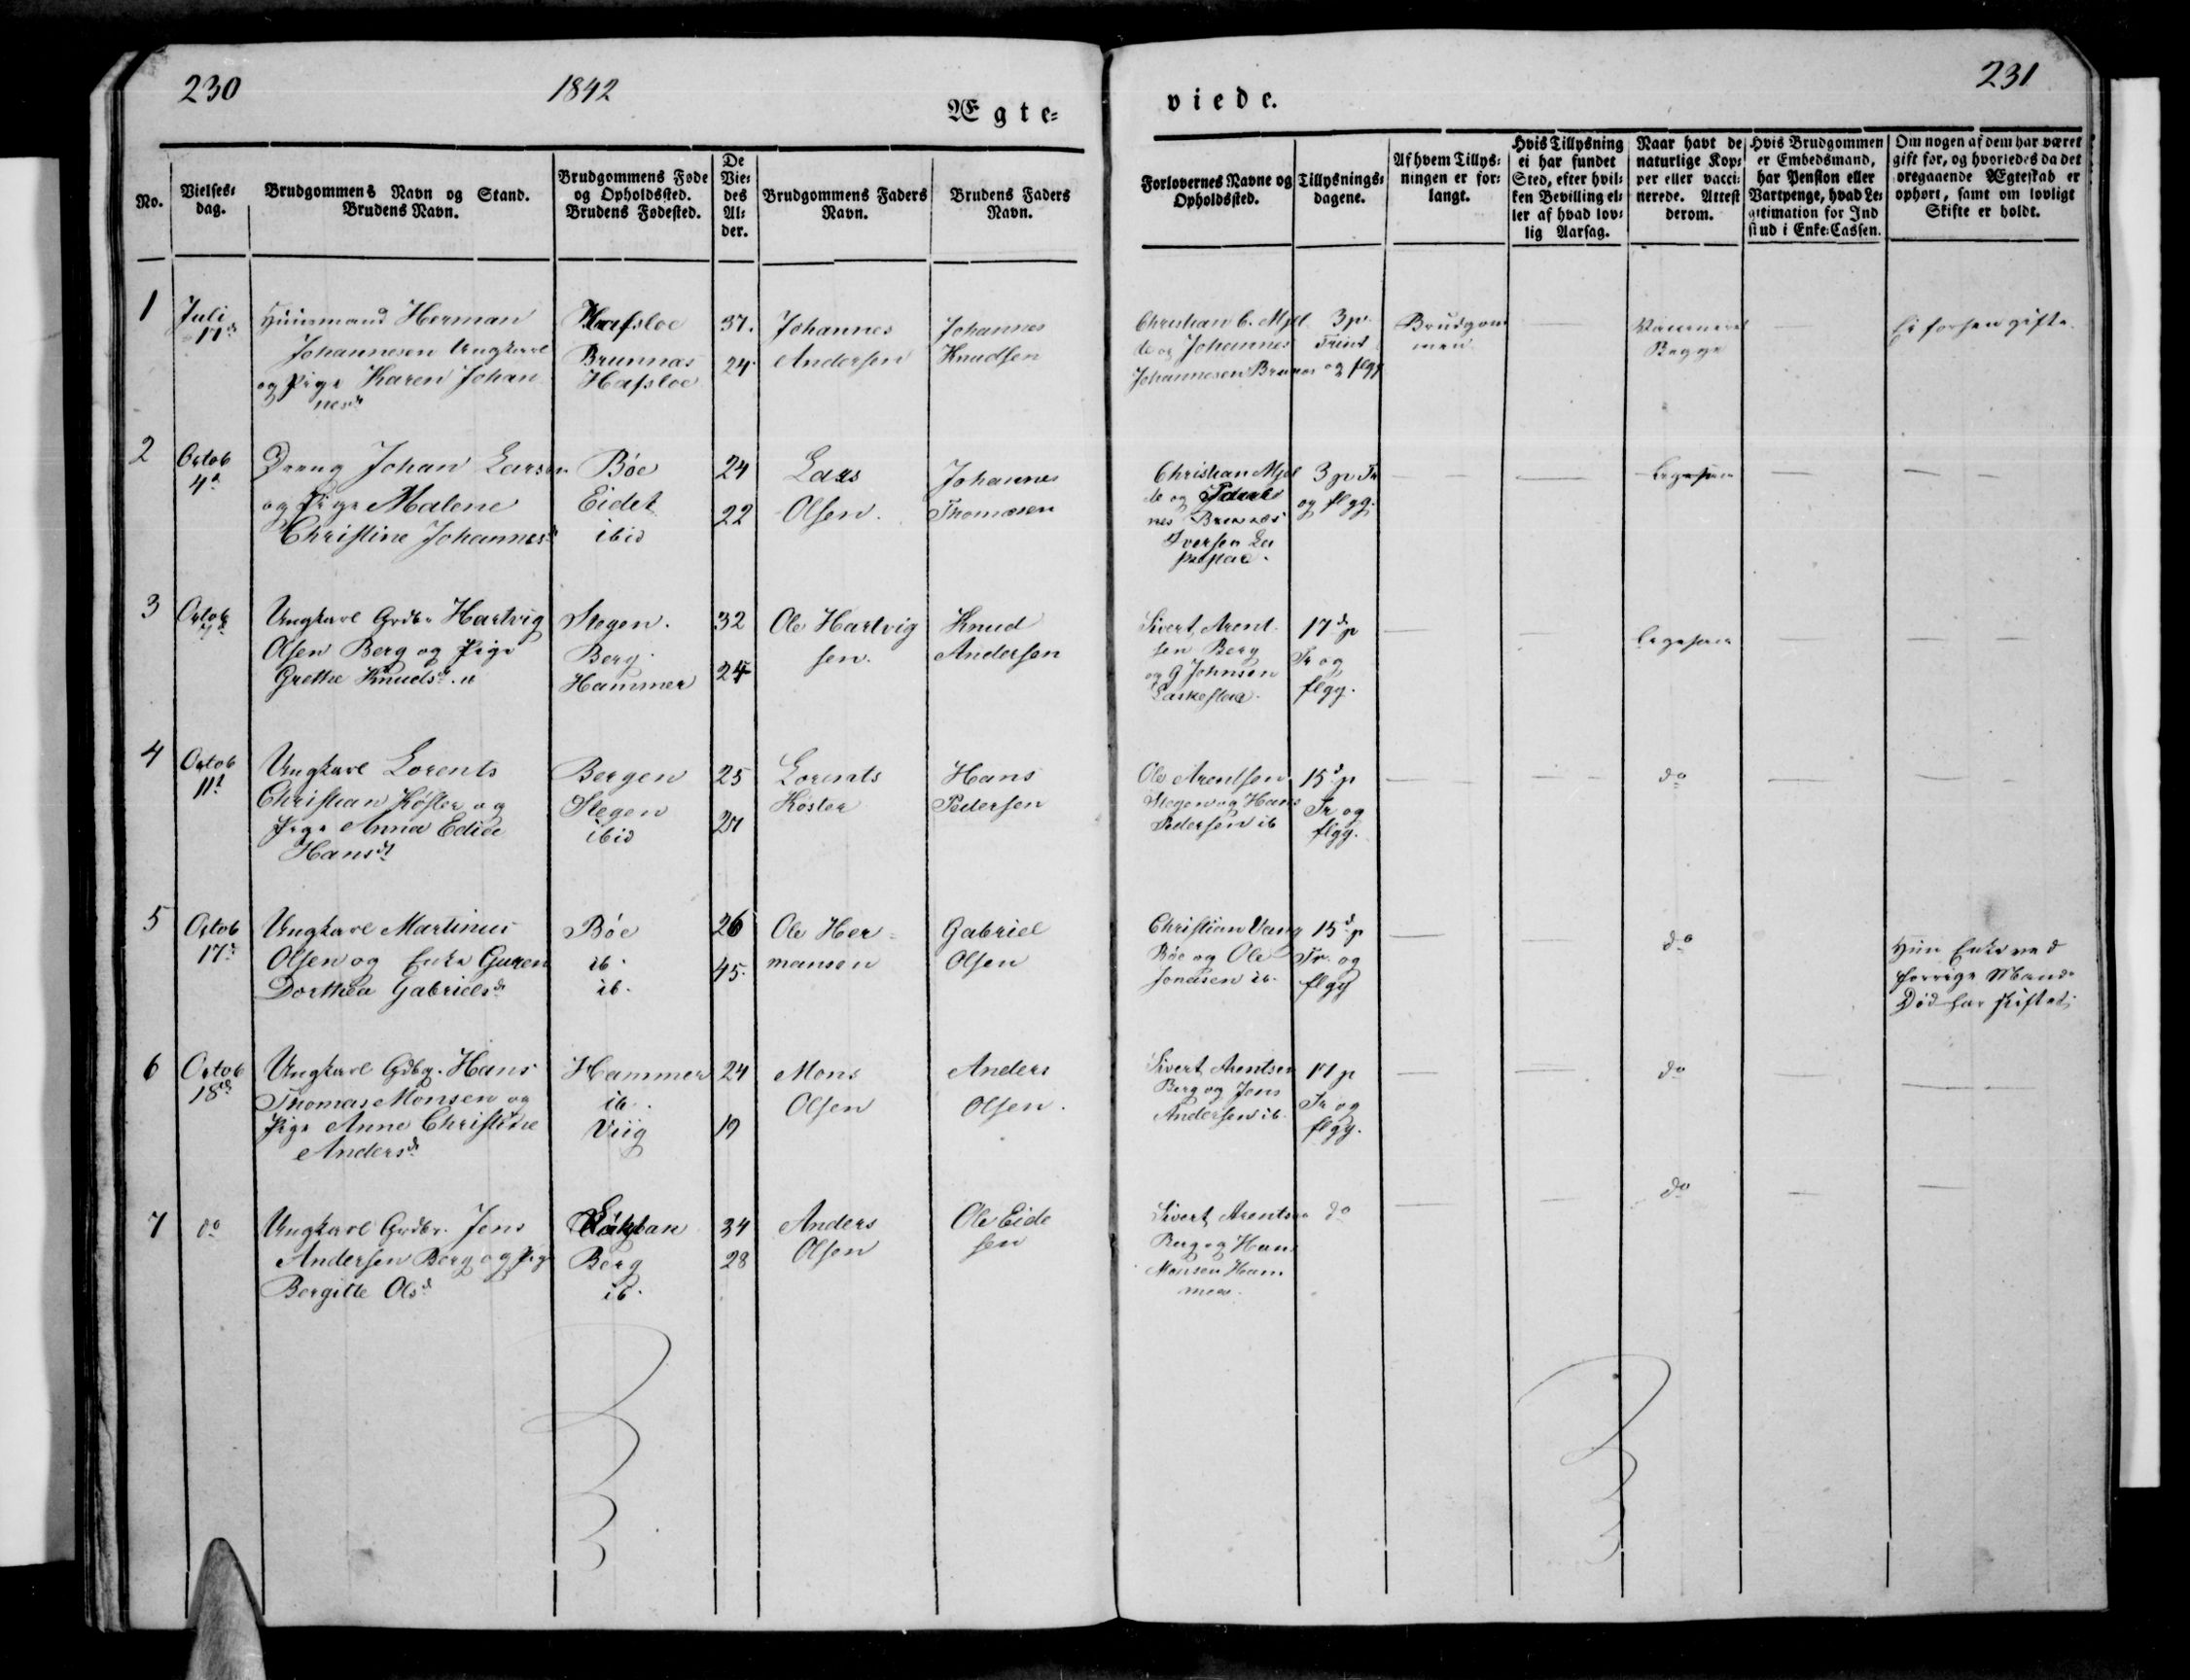 230
1842
Ægte-
viede.
231
No.
Vielses-
dag.
Brudgommens Navn og Stand.
Brudens Navn.
Brudgommens Føde
og Opholdssted.
Brudens Fødested.
De
Vie-
des
Al-
der.
Brudgommens Faders
Navn.
Brudens Faders
Navn.
Forlovernes Navne og
Opholdssted.
Tillysnings-
dagene.
Af hvem Tillys-
ningen er for-
langt.
Hvis Tillysning
ei har fundet
Sted, efter hvil-
ken Bevilling el-
ler af hvad lov-
lig Aarsag.
Naar havt de
naturlige Kop-
per eller vacci-
nerede. Attest
derom.
Hvis Brudgommen
er Embedsmand,
har Pension eller
Vartpenge, hvad Le-
gitimation for Ind
skud i Enke-Cassen.
Om nogen af dem har været
gift før, og hvorledes da det
foregaaende Ægteskab er
ophørt, samt om lovligt
Skifte er holdt.
1
Juli
17de
Huusmand Herman
Johannesen Ungkarl
og Pige Karen Johan
nesdr
Hafsloe
Brunnas
Hafsloe
37.
24
Johannes
Andersen
Johannes
Knudsen
Christian C. Mjel
de og Johannes
Johannesen
3 p.
Trint
og flgg
Brudgom
men
Begge
Ei forhen gifte
2
Octob
4d
Dreng Johan Larsen
og Pige Malene
Christine Johannesd
Bøe
Eidet
ibid
24
22
Lars
Olsen.
Johannes
Thomasen
Christian Mjel
de og
nes
Iversen
3 p Tr
og flgg.
ligesaa
3
Octob
Ungkarl Grdbr Hartvig
Olsen Berg og Pige
Grethe Knudsd.
Stegen.
Berg
Hammer
32
24
Ole Hartvig
sen.
Knud
Andersen
Sivert Arent
sen Berg
og G Johnsen
17d p
Tr og
flgg.
ligesaa
4
Octob
11d
Ungkarl Lorents
Christian Køster og
Pige Anna Edide
Hansdr
Bergen
Stegen
ibid
25
Lorents
Køster
Hans
Pedersen
Ole Arentsen
Stegen og Hans
Pedersen ib
15d p
Tr og
flgg.
do
5
Octob
17d
Ungkarl Martinus
Olsen og Enke Guren
Dorthea Gabrielsd
Bøe
ib.
ib.
26
45.
Ole Her-
mansen
Gabriel
Olsen
Christian Vang
Bøe og Ole
Jonasen ib.
15d p
Tr. og
flgg
do
Hun Enke ved
forrige Mands
Død har skiftet.
6
Octob
18d
Ungkarl Gdbr. Hans
Thomas Monsen og
Pige Anne Christine
Andersd
Hammer
ib.
Viig
24
19
Mons
Olsen
Anders
Olsen.
Sivert Arentsen
Berg og Jens
Andersen ib.
17 p
Tr og
flgg.
do
7
do
Ungkarl Grdbr. Jens
Andersen Berg og Pige
Bergitte Olsd
Berg
ib.
34
28
Anders
Olsen
Ole Eide
sen
Sivert Arentsen
Berg og Hans
Monsen Ham
mer.
do
do